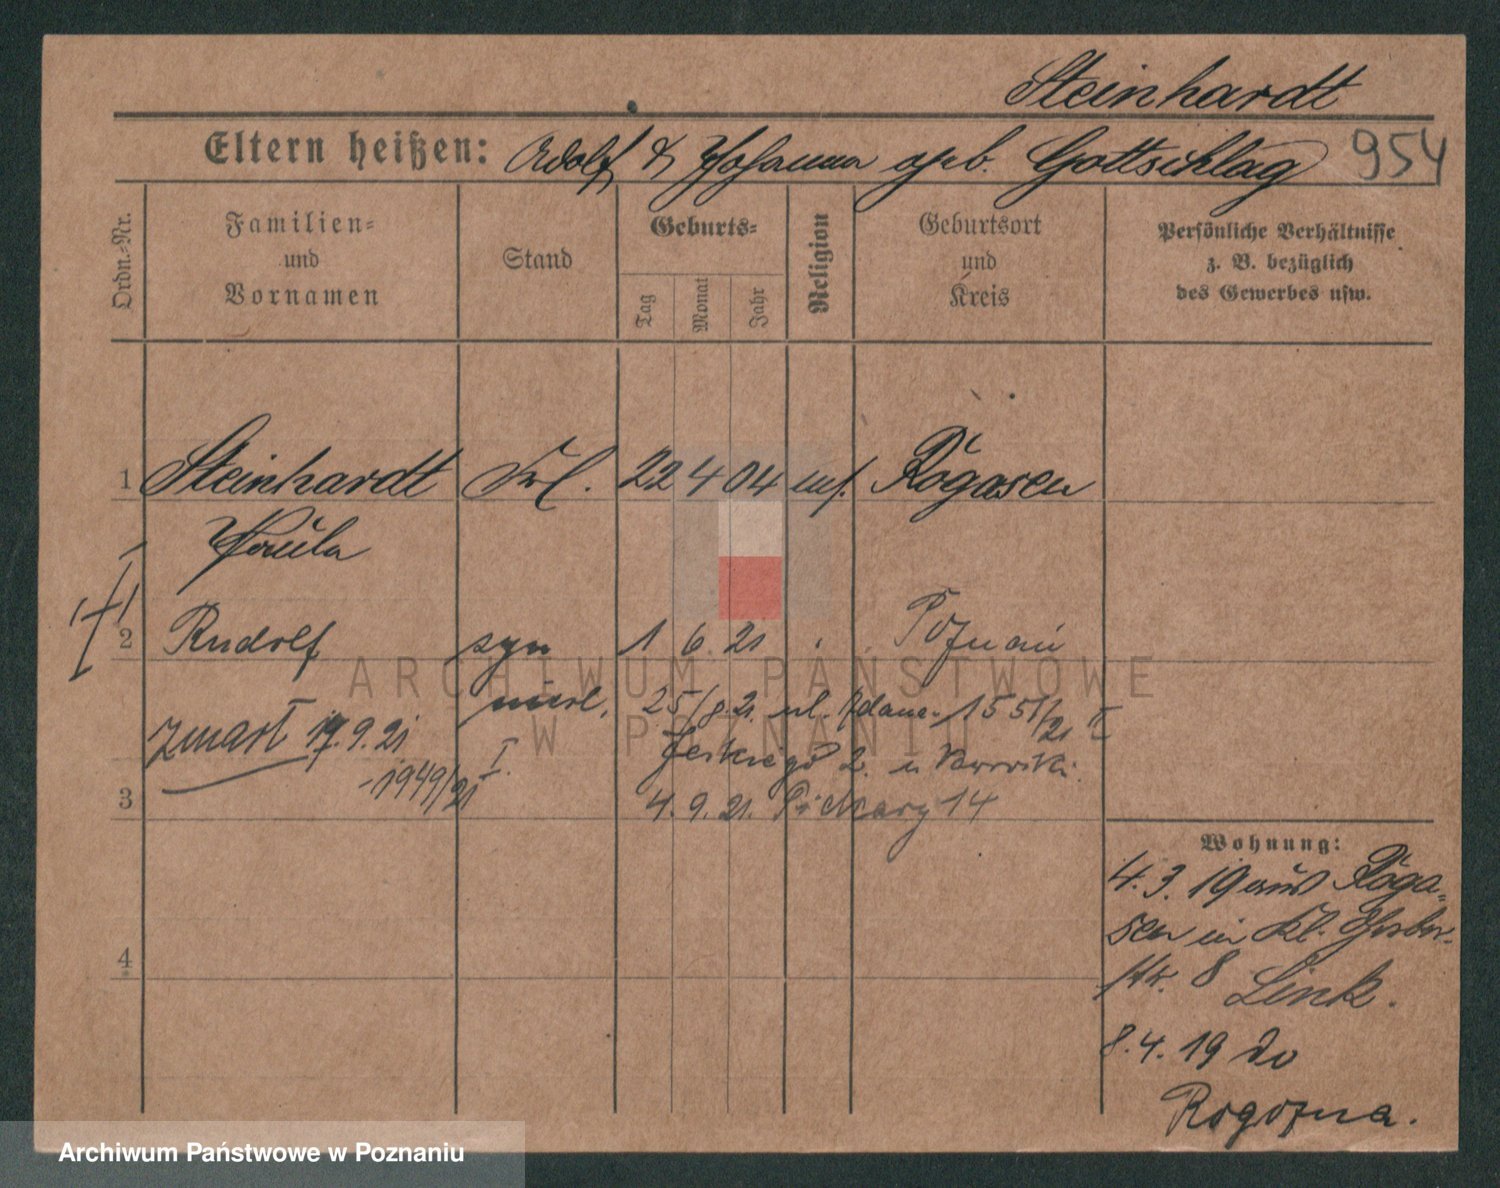 Steinhardt
Eltern heißen: Adolf & Johanna geb. Gottschlag 954
Ordn.-Nr.
Familien-
und
Vornamen
Stand
Geburts-
Tag
Monat
Jahr
Religion
Geburtsort
und
Kreis
Persönliche Verhältnisse
z. B. bezüglich
des Gewerbes usw.
1 Steinhardt Frl. 22 4 04 Rogasen
Paula
2 Rudolf syn 1 6. 21 Poznań
nieśl. 25/8.21. ul. 1551/21 I
zmarł 17.9.21 2. u
-1949/21 I.
3 4. 9. 21. Piekary 14
4
Wohnung:
4. 3. 19 aus Roga-
sen in Kl. Gerber-
str. 8 Link.
8. 4. 19 do
Rogozna.
ARCHIWUM PAŃSTWOWE
W POZNANIU
Archiwum Państwowe w Poznaniu